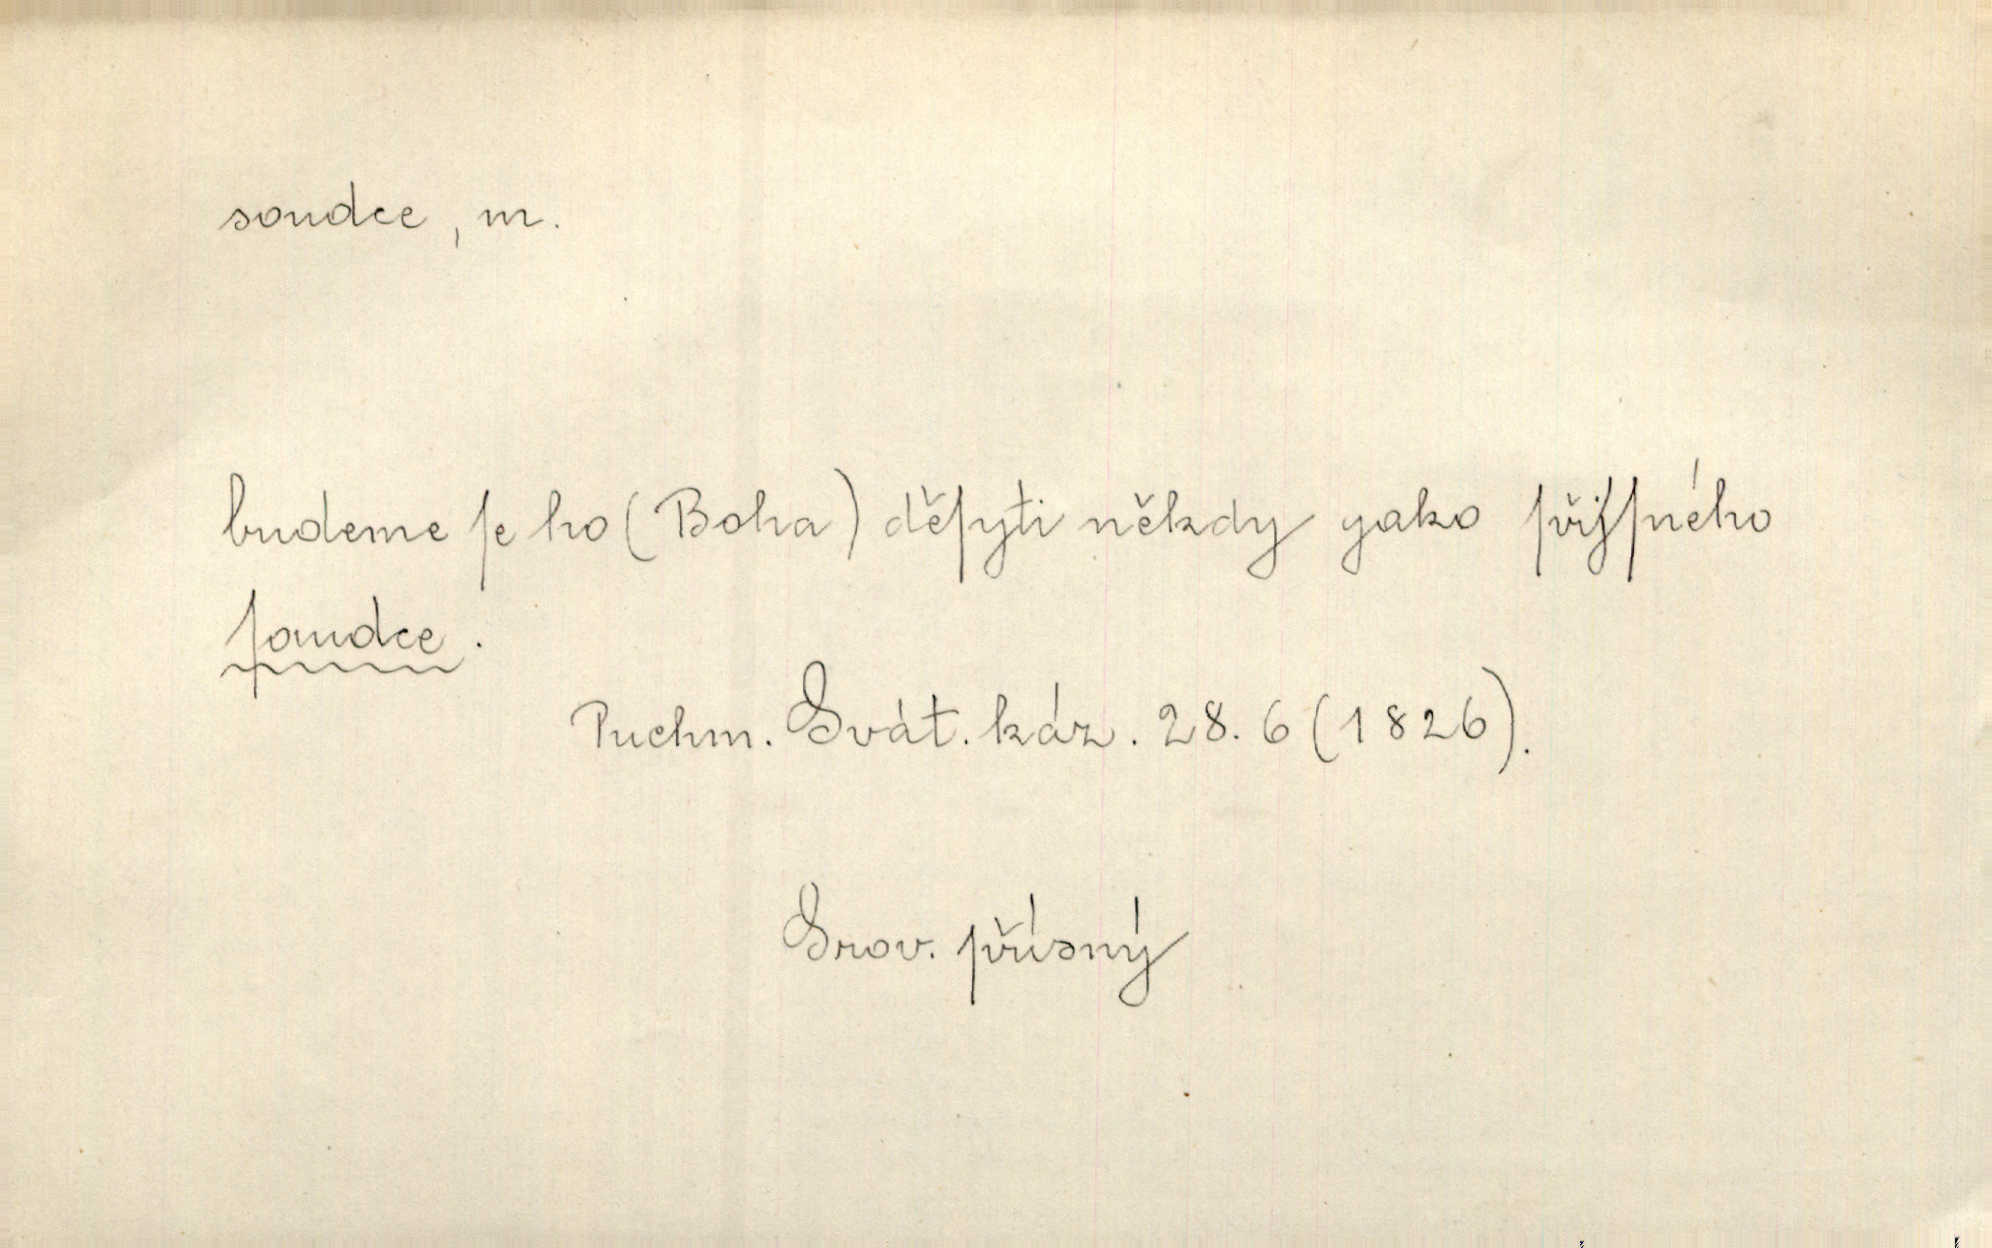 soudce, m.
budeme ſe ho (Boha) děſyti někdy gako přijſného
ſaudce.
Puchm. Svát. káz. 28. 6 (1826).
Srov. přísný